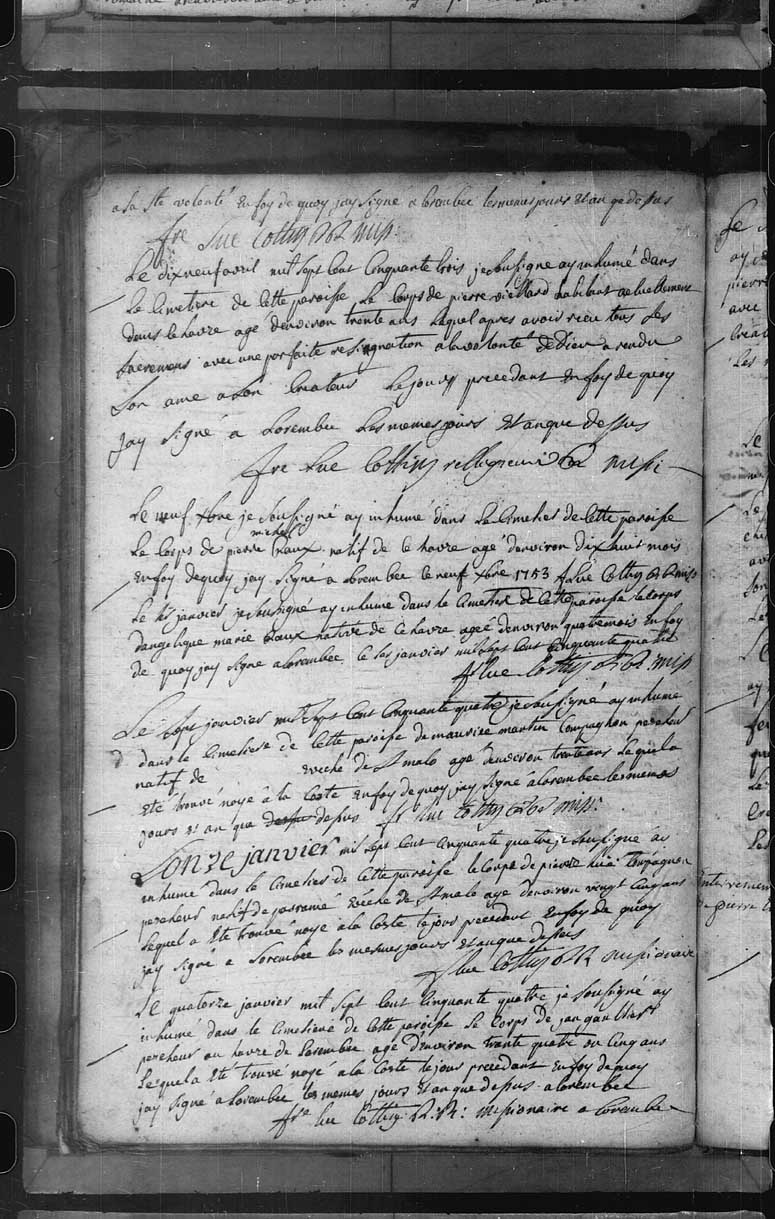 a sa Ste volonté En foy de quoy jay signé a lorembec les memes jours Et an que dessus
fre Luc Cottin R R mis:
Le dix neuf avril mil sept Cent Cinquante trois je sousigne ay inhumé dans
Le Cimetiere de Cette paroisse Le Corps de pierre habitant actuellement
dans le havre agé denviron trente ans Lequel apres avoir receu tous Les
sacremens avec une parfaite resignation a la volonté de Dieu a rendu
son ame a son Createur Le jour precedant En foy de quoy
jay signé a Lorembec Les memes jours Et an que dessus
fre Luc Cottin relligieux R misi
Le neuf Xbre je sousigné ay inhumé dans Le Cimetier de Cette paroisse
michel
Le Corps de pierre natif de ce havre agé denviron dix huit mois
En foy de quoy jay signé a lorembec le neuf Xbre 1753 f Luc Cottin R R mis
Le janvier je sousigné ay inhume dans le Cimetiere de Cette paroisse le Corps
dangelique marie native de Ce havre agée denviron quatre mois En foy
de quoy jay signe a lorembec le janvier mil sept Cent Cinquante quatre
fr Luc Cottin R R mis
Le sept janvier mil sept Cent Cinquante quatre je sousigné ay inhumé
dans Le Cimetiere de Cette paroisse de maurice martin Compagnon pecheur
natif de Eveché de St malo agé denviron trente ans Lequel a
Eté trouvé noyé à la Coste En foy de quoy jay signé a lorembec les memes
jours Et an que depus fr Luc Cottin R R mis:
L'onze janvier mil sept Cent Cinquante quatre je sousigne ay
inhumé dans le Cimetier de Cette paroisse le Corps de pierre Compagnon
pecheur natif de paramé Evêché de St malo age denviron vingt Cinq ans
Lequel a Eté trouvé noyé à la Coste le jour precedant En foy de quoy
jay signé a Lorembec les mesmes jours Et an que dessus
f Luc Cottin R R missionaire
Le quatorze janvier mil sept Cent Cinquante quatre je sousigné ay
inhumé dans le Cimetiere de Cette paroisse Le Corps de jan gaultier
pecheur au havre de Lorembec agé denviron trante quatre ou Cinq ans
Lequel a Eté trouvé noyé a la Coste le jour precedant En foy de quoy
jay signé a Lorembec les memes jours Et an que depus a lorembec
fre Luc Cottin R. R: missionaire a lorembec